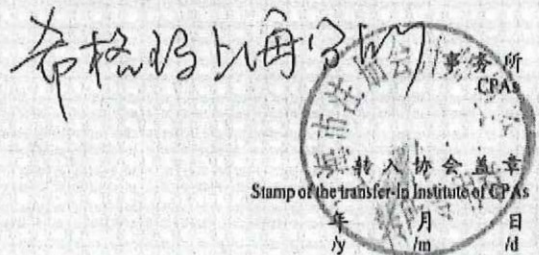 希格玛上海分所
事务所
CPAs
转入协会盖章
Stamp of the transfer-in Institute of CPAs
年 月 日
/y /m /d